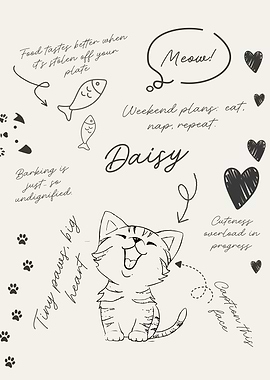 Food tastes better when
it's stolen off your
plate
Meow!
Weekend plans: eat,
nap, repeat.
Daisy
Barking is
just so
undignified.
Cuteness
overload in
progress
Tiny paws, big
heart
Caption this
face